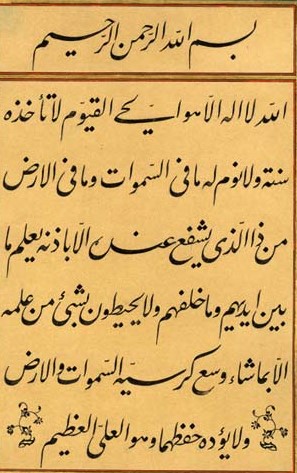 بسم الله الرحمن الرحیم
الله لا اله الا هو الحی القیوم لا تأخذه
سنة ولا نوم له ما فی السموات وما فی الارض
من ذا الذی یشفع عنده الا باذنه یعلم ما
بین ایدیهم وما خلفهم ولا یحیطون بشیء من علمه
الا بما شاء وسع کرسیه السموات والارض
ولا یؤده حفظهما وهو العلی العظیم